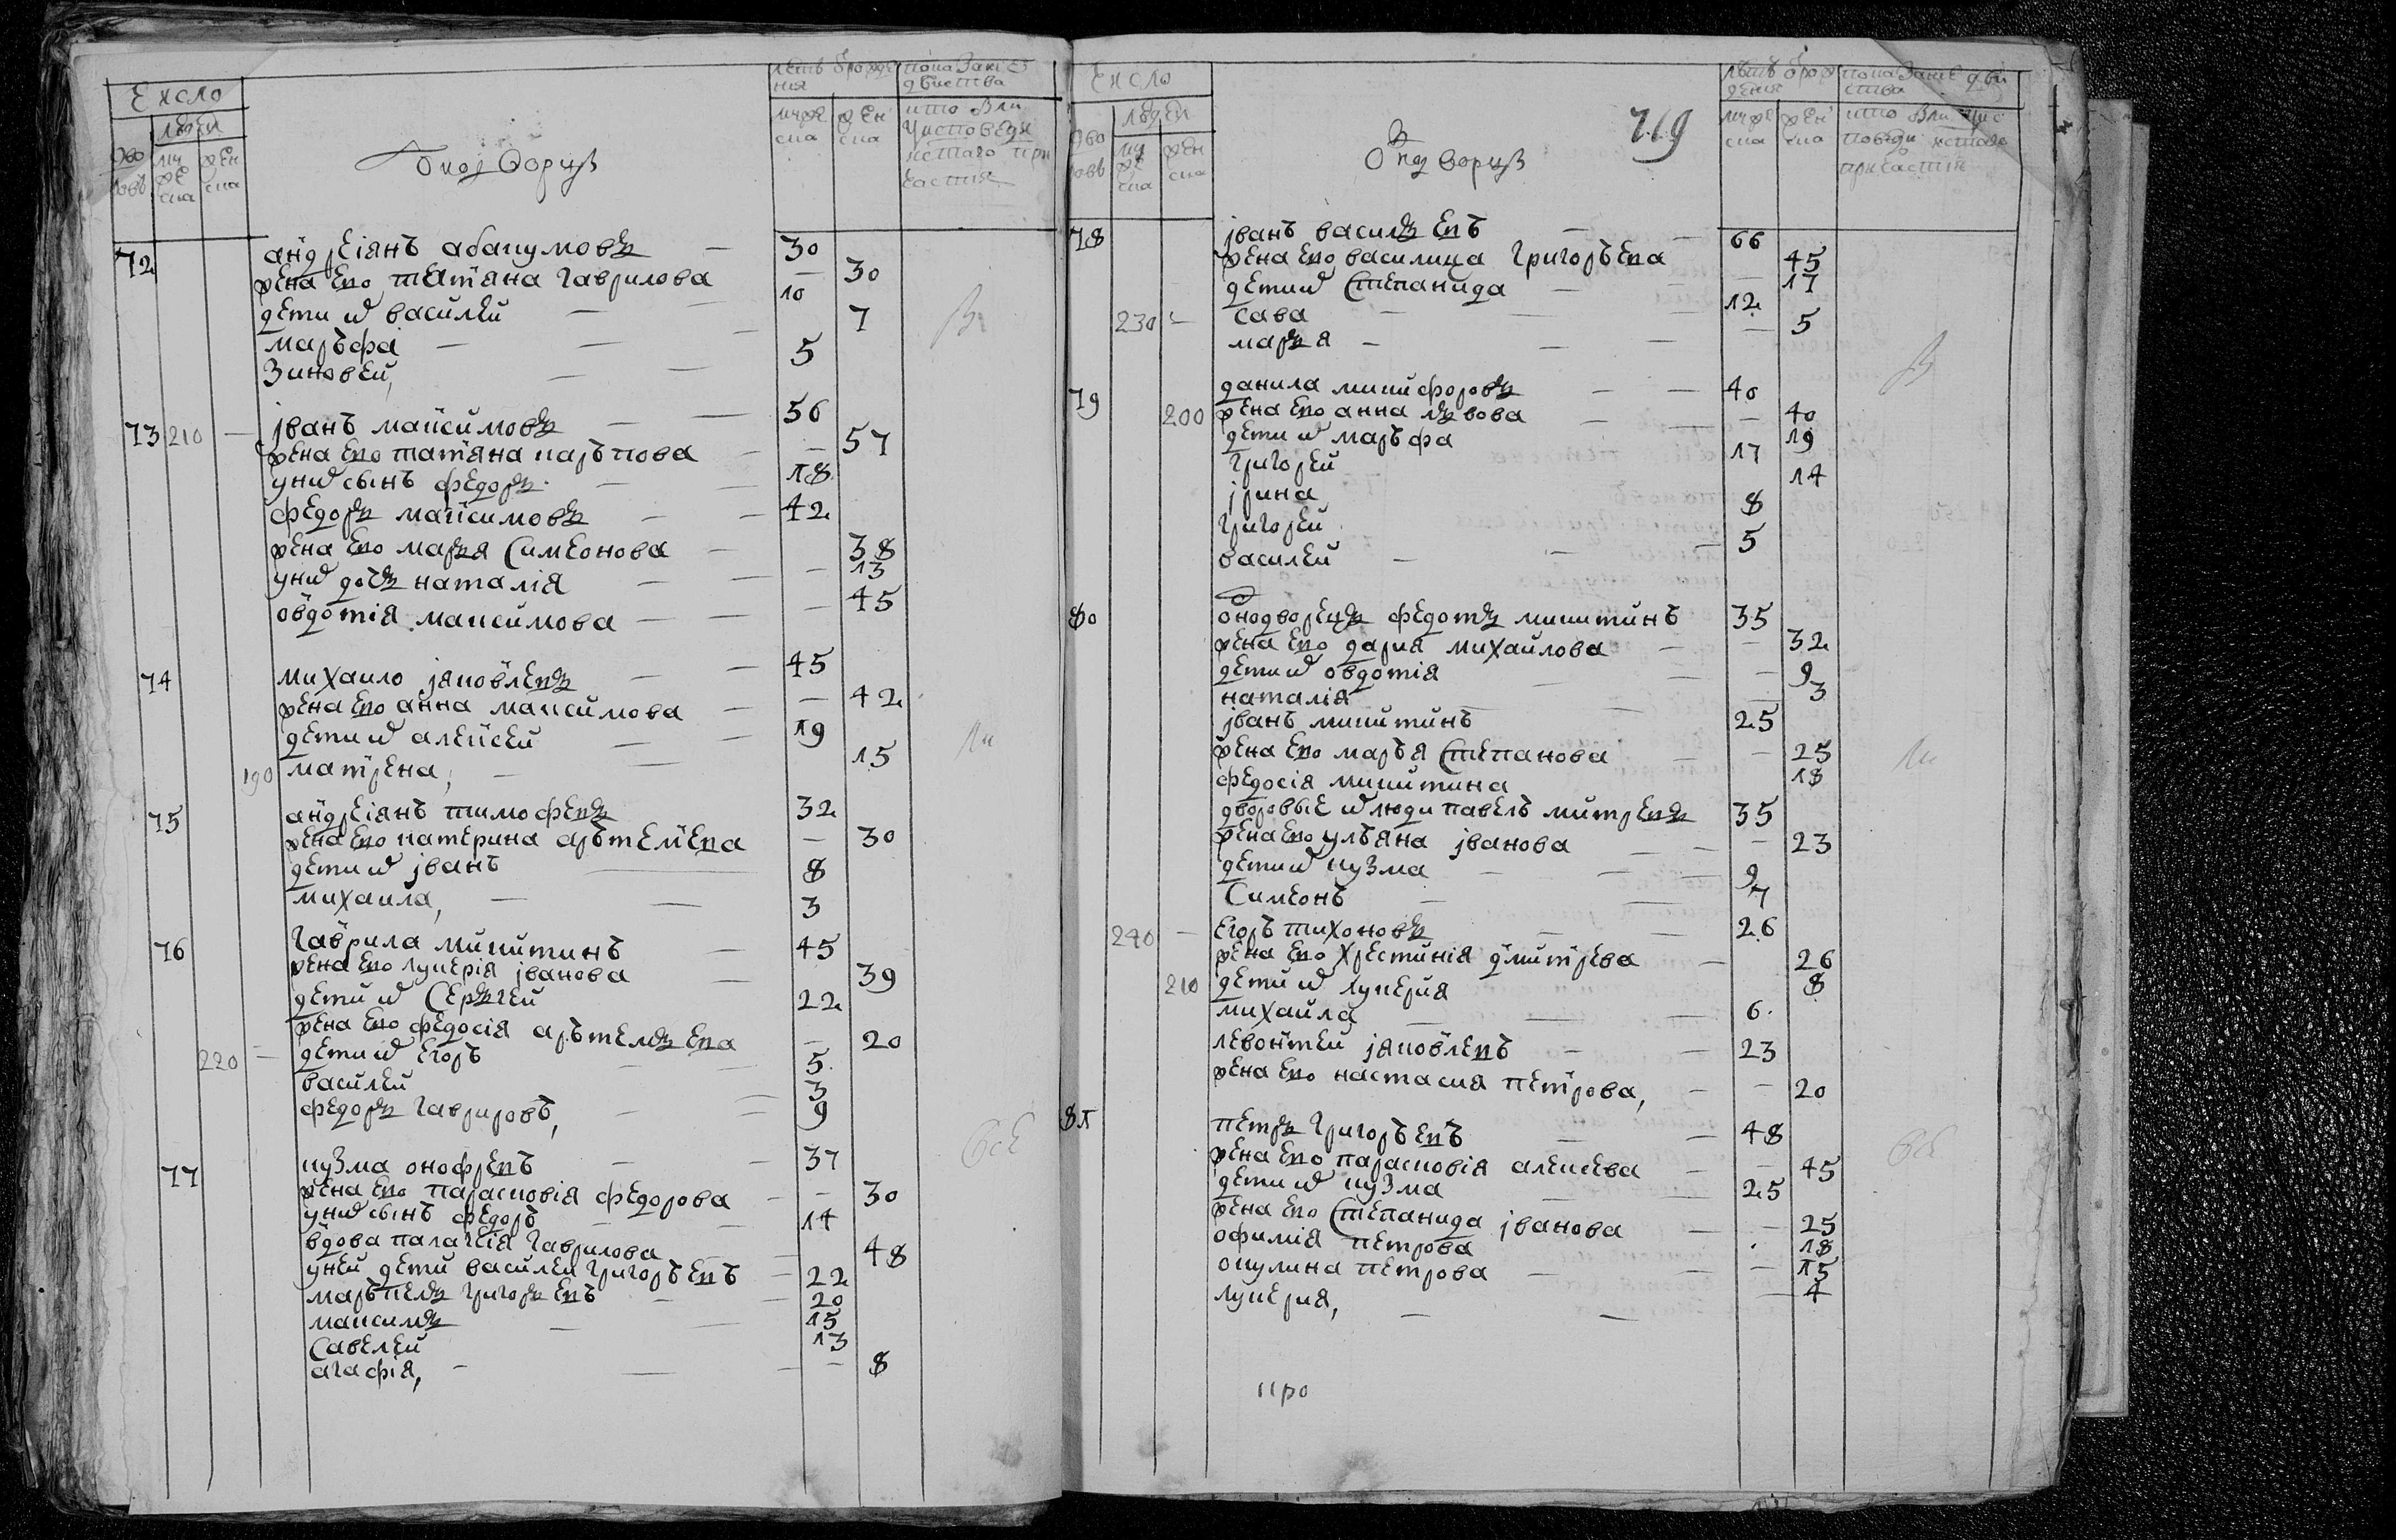 Число
Дво
ровъ
людей
муже
ска
жен
ска
Однодворцы
летъ отрожде
ния
муже
ска
жен
ска
показание
действа
кто были
уисповеди
истаго при
частия
72
андреiянъ абакумовъ — 30
жена ево татьяна гаврилова — 30
дети их василей — 10
маръфа — 7
зиновей, — 5
73 210 — iванъ максимовъ — 56
жена ево татьяна карпова — 57
уних сынъ федоръ — 18
федоръ максимовъ — 42
жена ево марья Симеонова — 38
уних дочь наталiя — 13
овдотiя максимова — 45
74 михаило iяковлевъ — 45
жена ево анна максимова — 42
дети их алексей — 19
190 матрена, — 15
75 андреiянъ тимофеевъ 32
жена ево катерина арътемева — 30
дети их iванъ — 8
михаила, — 3
76 гаврила микитинъ — 45
жена ево лукерiя iванова — 39
дети их Сергей 22
жена ево федосiя арътемьева — 20
220 — дети их егоръ — 5
василей 3
федоръ гавриловъ, — 9
77 кузма онофревъ — 37
жена ево парасковiя федорова — 30
уних сынъ федоръ — 14
вдова палагея гаврилова — 48
уней дети василей григоръевъ — 22
маръкелъ григорьевъ — 20
максимъ — 15
Савелей 13
агафiя, — 8
Вси
Число
Дво
ровъ
людей
му
же
ска
жен
ска
Однодворцы
719
летъ отрож
дения
муже
ска
жен
ска
показание дей
ства
кто были уис
поведи истаго
причастия
78 iванъ васильевъ — 66
жена ево василиса григоръева — 45
дети их Степанида — 17
230 — сава — 12
марья — 5
79 данила микифоровъ — 40
200 жена ево анна львова — 40
дети их маръфа 19
григорей 17
iрина 14
григорей 8
василей — 5
80 однодворецъ федотъ микитинъ 35
жена ево дария михайлова — 32
дети их овдотiя — 9
наталiя — 3
iванъ микитинъ 25
жена ево маръя Степанова — 25
федосiя микитина 18
дворовые их люди павелъ митревъ 35
жена ево улъяна iванова — 23
дети их кузма — 9
Симеонъ — 7
240 — егоръ тихоновъ — 26
жена ево христинiя дмитрева — 26
210 дети их лукерия 8
михаила — 6
левонтей iяковлевъ — 23
жена ево настасия петрова, — 20
81 петръ григоръевъ — 48
жена ево парасковiя алексева — 45
дети их кузма — 25
жена ево Степанида iванова — 25
офимiя петрова 18
окулина петрова — 15
лукерия, — 4
Вси
про